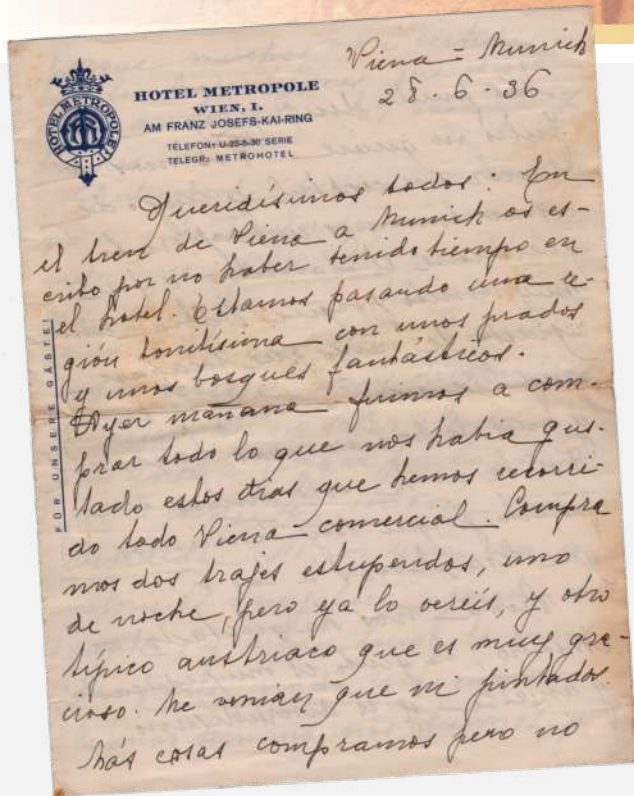 Viena - Munich
28-6-36
HOTEL METROPOLE
HOTEL METROPOLE
WIEN, I.
AM FRANZ JOSEFS-KAI-RING
TELEFON: U-25-5-30 SERIE
TELEGR: METROHOTEL
FÜR UNSERE GÄSTE!
Queridísimos todos: En
el tren de Viena a Munich os es-
cribo por no haber tenido tiempo en
el hotel. Estamos pasando una re-
gión bonitísima con unos prados
y unos bosques fantásticos.
Ayer mañana fuimos a com-
prar todo lo que nos habia gus-
tado estos dias que hemos recorri-
do todo Viena comercial. Compra
mos dos trajes estupendos, uno
de noche, pero ya lo vereis, y otro
típico austriaco que es muy gra-
cioso. Me venian que ni pintados.
Más cosas compramos pero no